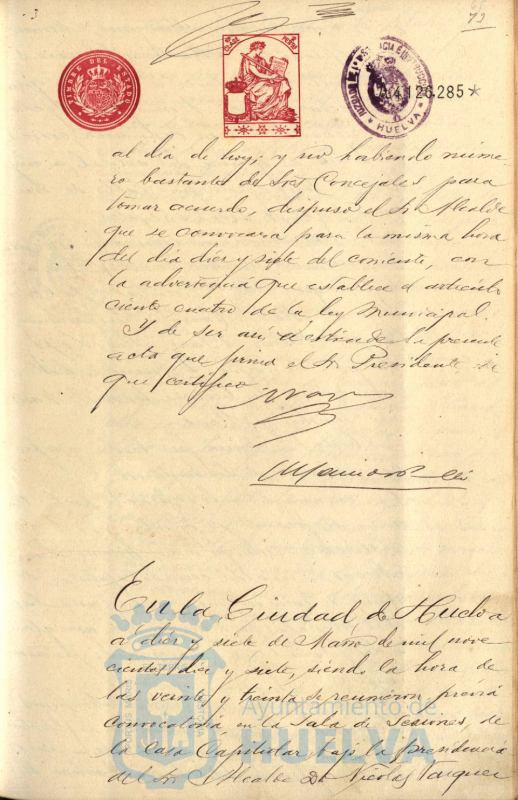 73
TIMBRE DEL ESTADO
CLASE
A4.126.285*
HUELVA
al dia de hoy; y no habiendo núme-
ro bastante de Sres Concejales para
tomar acuerdo, dispuso el Sr Alcalde
que se convocara para la misma hora
del dia diez y siete del corriente, con
la advertencia que establece el articulo
ciento cuatro de la ley Municipal.
Y de ser asi se extiende la presente
acta que firma el Sr Presidente de
que certifico.
En la Ciudad de Huelva
a diez y siete de Marzo de mil nove
cientos diez y siete, siendo la hora de
las veinte y treinta se reunieron previa
convocatoria, en la Sala de Sesiones, de
la Casa Capitular bajo la presidencia
del Sr Alcalde Dn Nicolas Vazquez
Ayuntamiento de
HUELVA